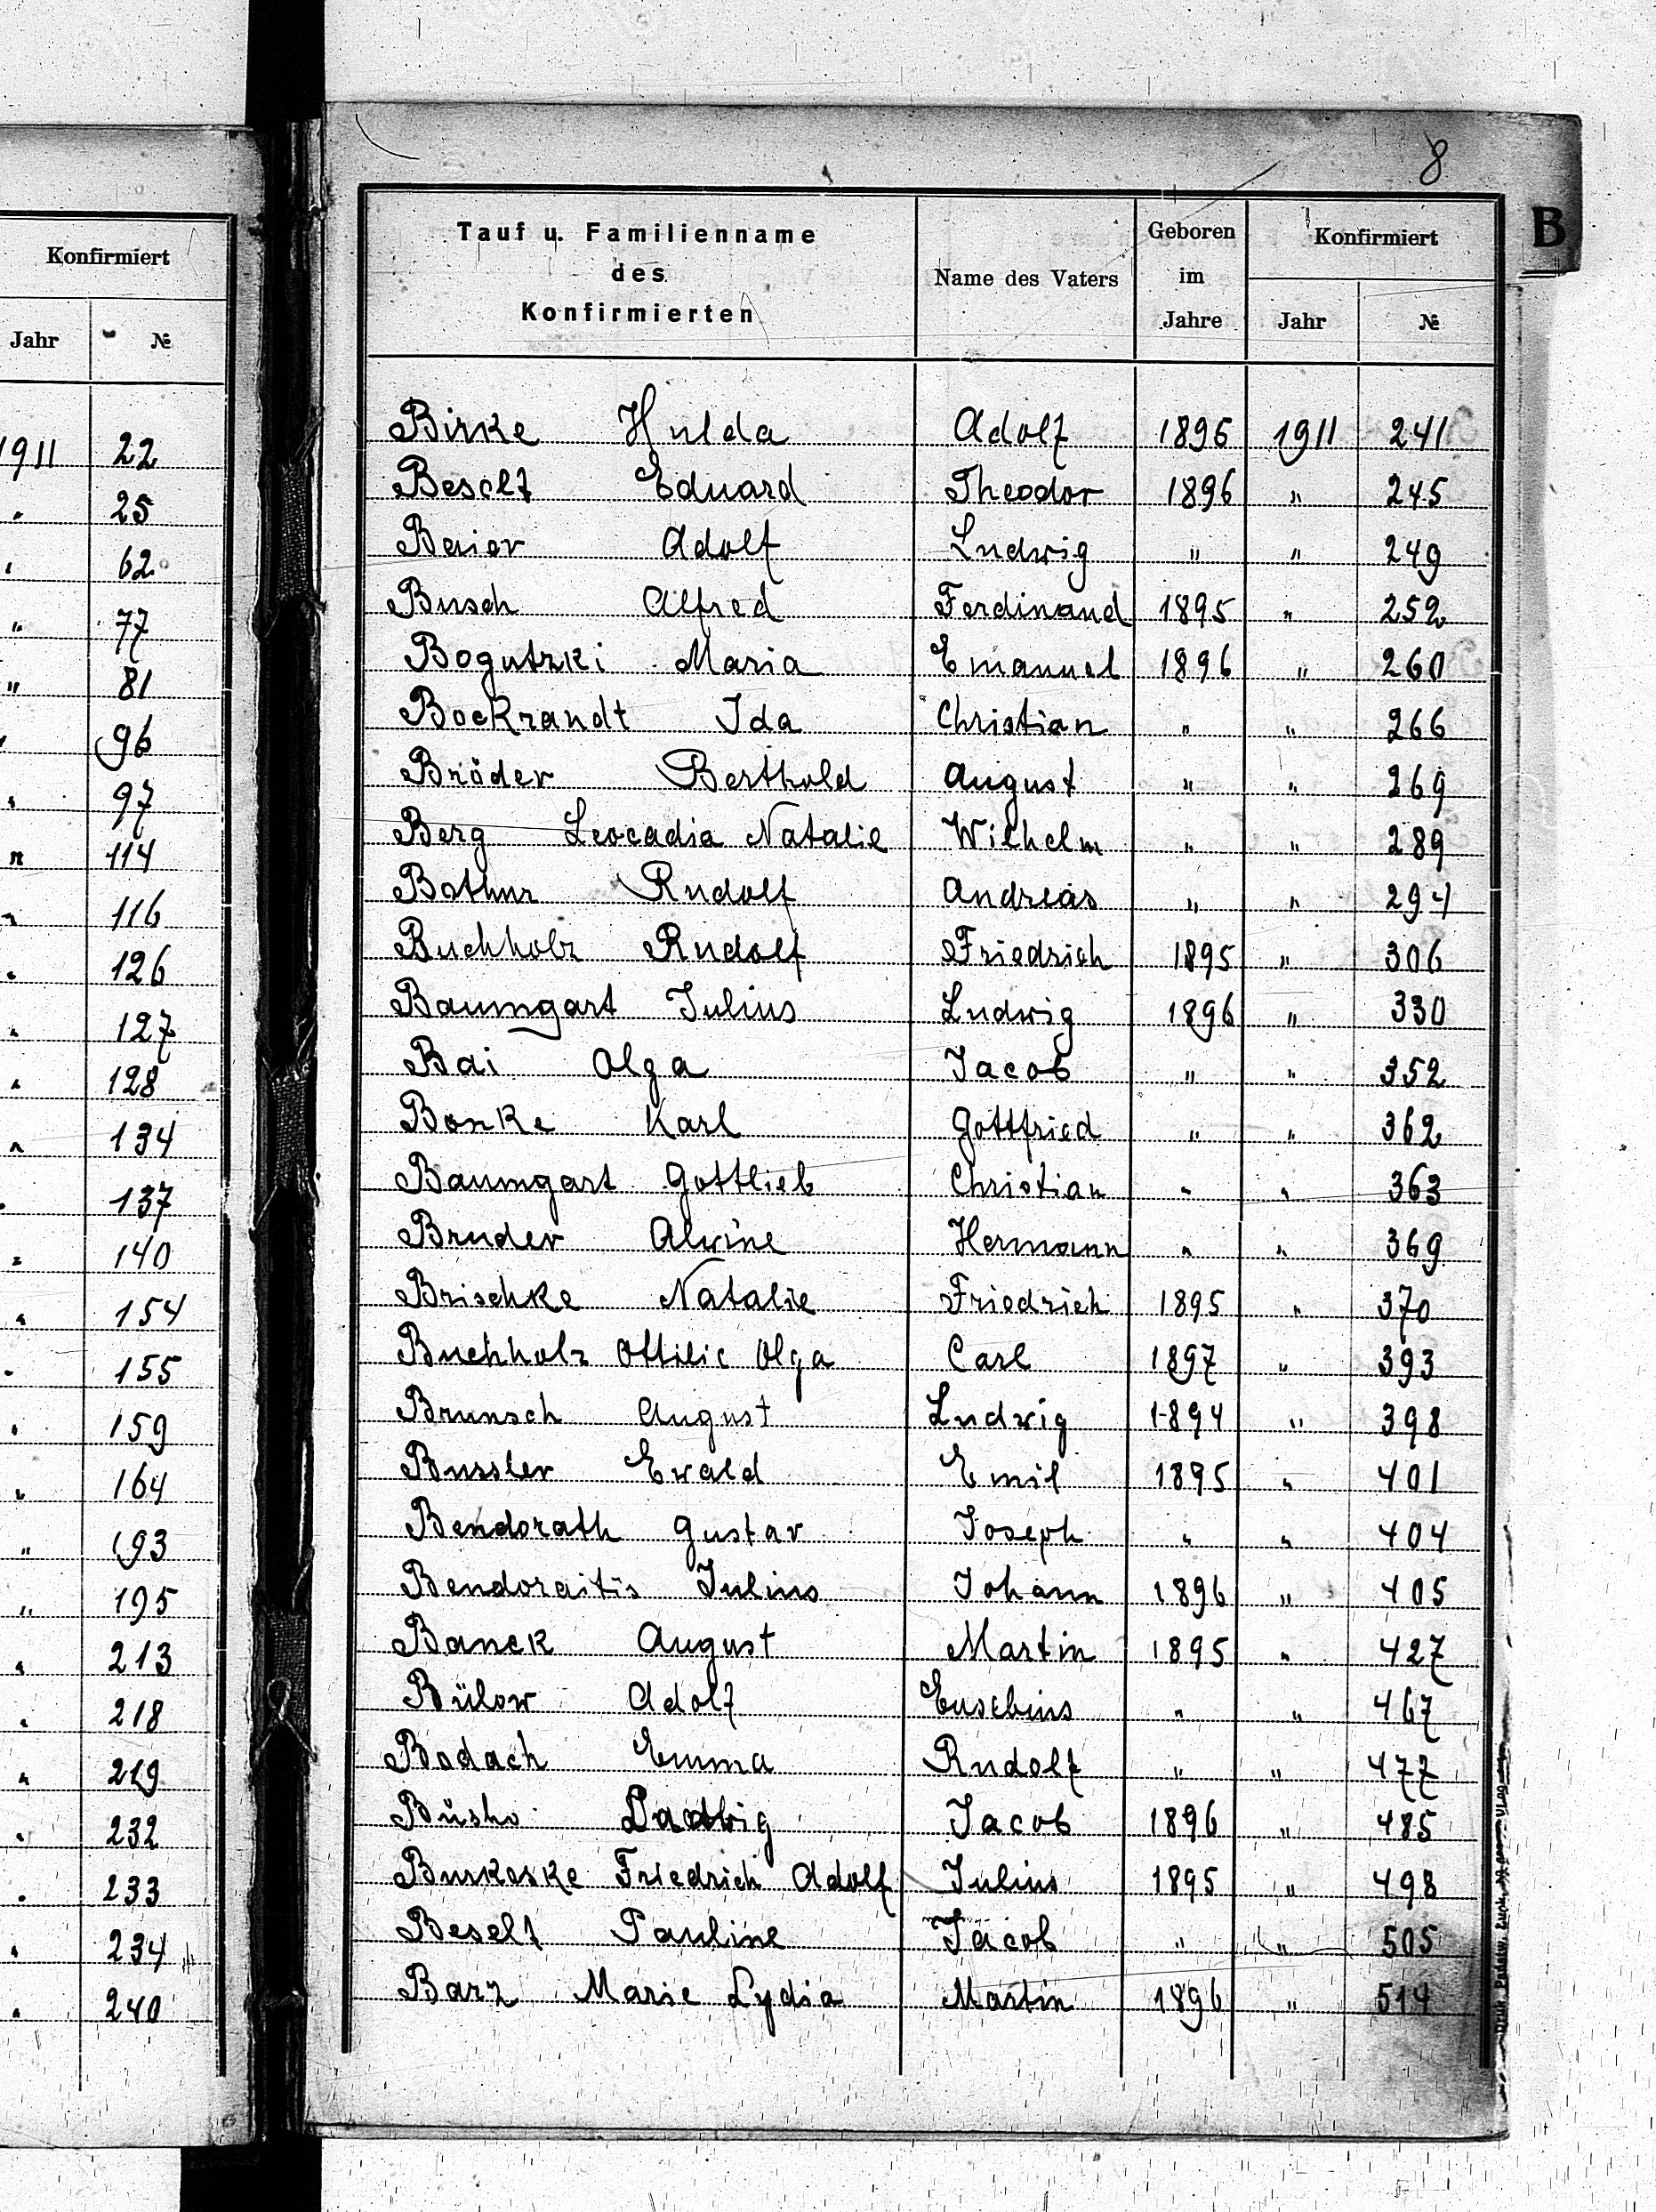 Konfirmiert
Jahr №
1911 22
" 25
" 62
" 77
" 81
" 96
" 97
" 114
" 116
" 126
" 127
" 128
" 134
" 137
" 140
" 154
" 155
" 159
" 164
" 193
" 195
" 213
" 218
" 219
" 232
" 233
" 234
" 240
8
B
Tauf u. Familienname des Konfirmierten
Name des Vaters
Geboren im Jahre
Konfirmiert
Jahr №
Birke Hulda Adolf 1896 1911 241
Beselt Eduard Theodor 1896 " 245
Baier Adolf Ludwig " " 249
Busch Alfred Ferdinand 1895 " 252
Bogutzki Maria Emanuel 1896 " 260
Bockrandt Ida Christian " " 266
Bröder Berthold August " " 269
Berg Leocadia Natalie Wilhelm " " 289
Bothur Rudolf Andreas " " 294
Buchholz Rudolf Friedrich 1895 " 306
Baumgart Julius Ludwig 1896 " 330
Bai Olga Jacob " " 352
Bonke Karl Gottfried " " 362
Baumgart Gottlieb Christian " " 363
Bruder Alwine Hermann " " 369
Brischke Natalie Friedrich 1895 " 370
Buchholz Ottilie Olga Carl 1897 " 393
Brunsch August Ludwig 1894 " 398
Bussler Ewald Emil 1895 " 401
Bendorath Gustav Joseph " " 404
Bendoraitis Julius Johann 1896 " 405
Banck August Martin 1895 " 427
Bülow Adolf Eusebius " " 467
Bodach Emma Rudolf " " 477
Büsho Ludwig Jacob 1896 " 485
Burkeske Friedrich Adolf Julius 1895 " 498
Beselt Pauline Jacob " " 505
Barz Marie Lydia Martin 1896 " 514